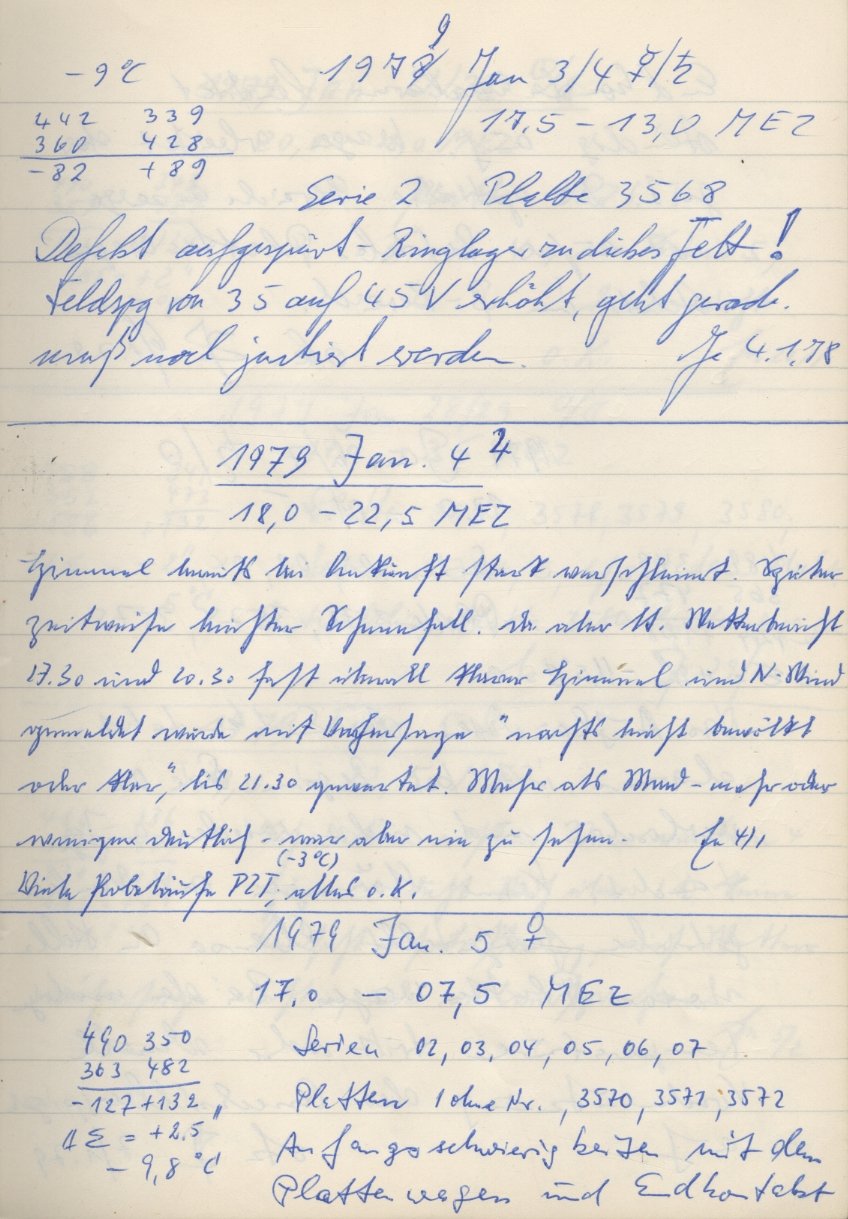 -9°C 1979 Jan 3/4 ☿/♃
442 339 17,5 - 13,0 MEZ
360 428
-82 +89
Serie 2 Platte 3568
Defekt aufgespürt - Ringlager zu dickes Fett!
Feldspg von 35 auf 45V erhöht, geht gerade.
muß noch justiert werden. Je 4.1.78
1979 Jan. 4 ♃
18,0 - 22,5 MEZ
Himmel bereits bei Ankunft stark verschleiert. Später
zeitweise leichter Schneefall. Da aber lt. Wetterbericht
17.30 und 20.30 fast überall klarer Himmel und N-Wind
gemeldet wurde mit Vorhersage "nachts leicht bewölkt
oder klar", bis 21.30 gewartet. Mehr als Mond - mehr oder
weniger deutlich - war aber nie zu sehen. 4/1
(-3°C)
Viele Probeläufe PZT, alles o.K.
1979 Jan. 5 ♀
17,0 - 07,5 MEZ
490 350 Serien 02, 03, 04, 05, 06, 07
363 482
-127 +132 Platten 1 ohne Nr., 3570, 3571, 3572
ΔΣ = +2,5 Anfangsschwierigkeiten mit dem
-9,8°C
Plattenwagen und Endkontakt